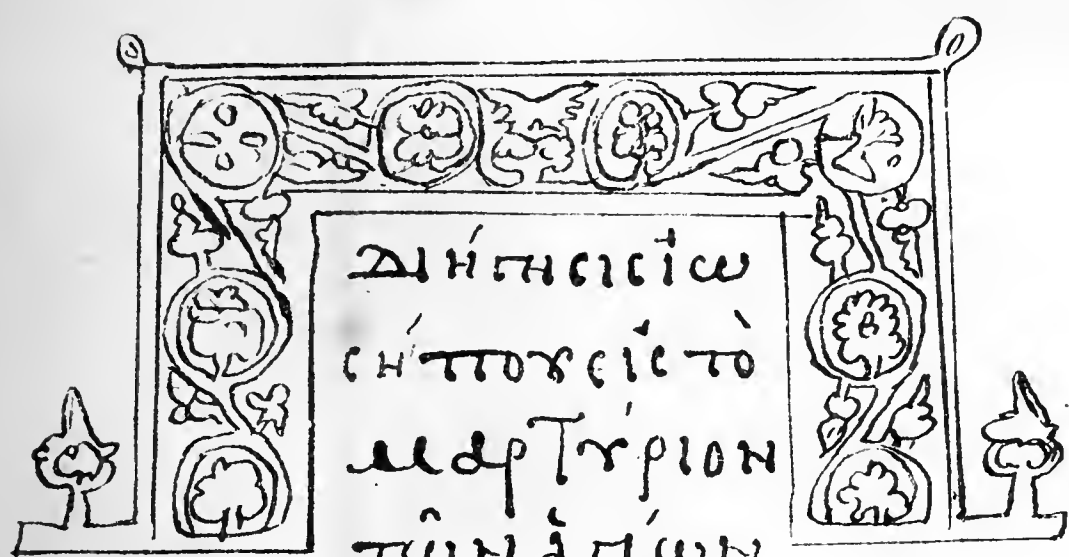 Διήγησις ἰω
σήππου εἰς τὸ
μαρτύριον
τῶν ἁγίων